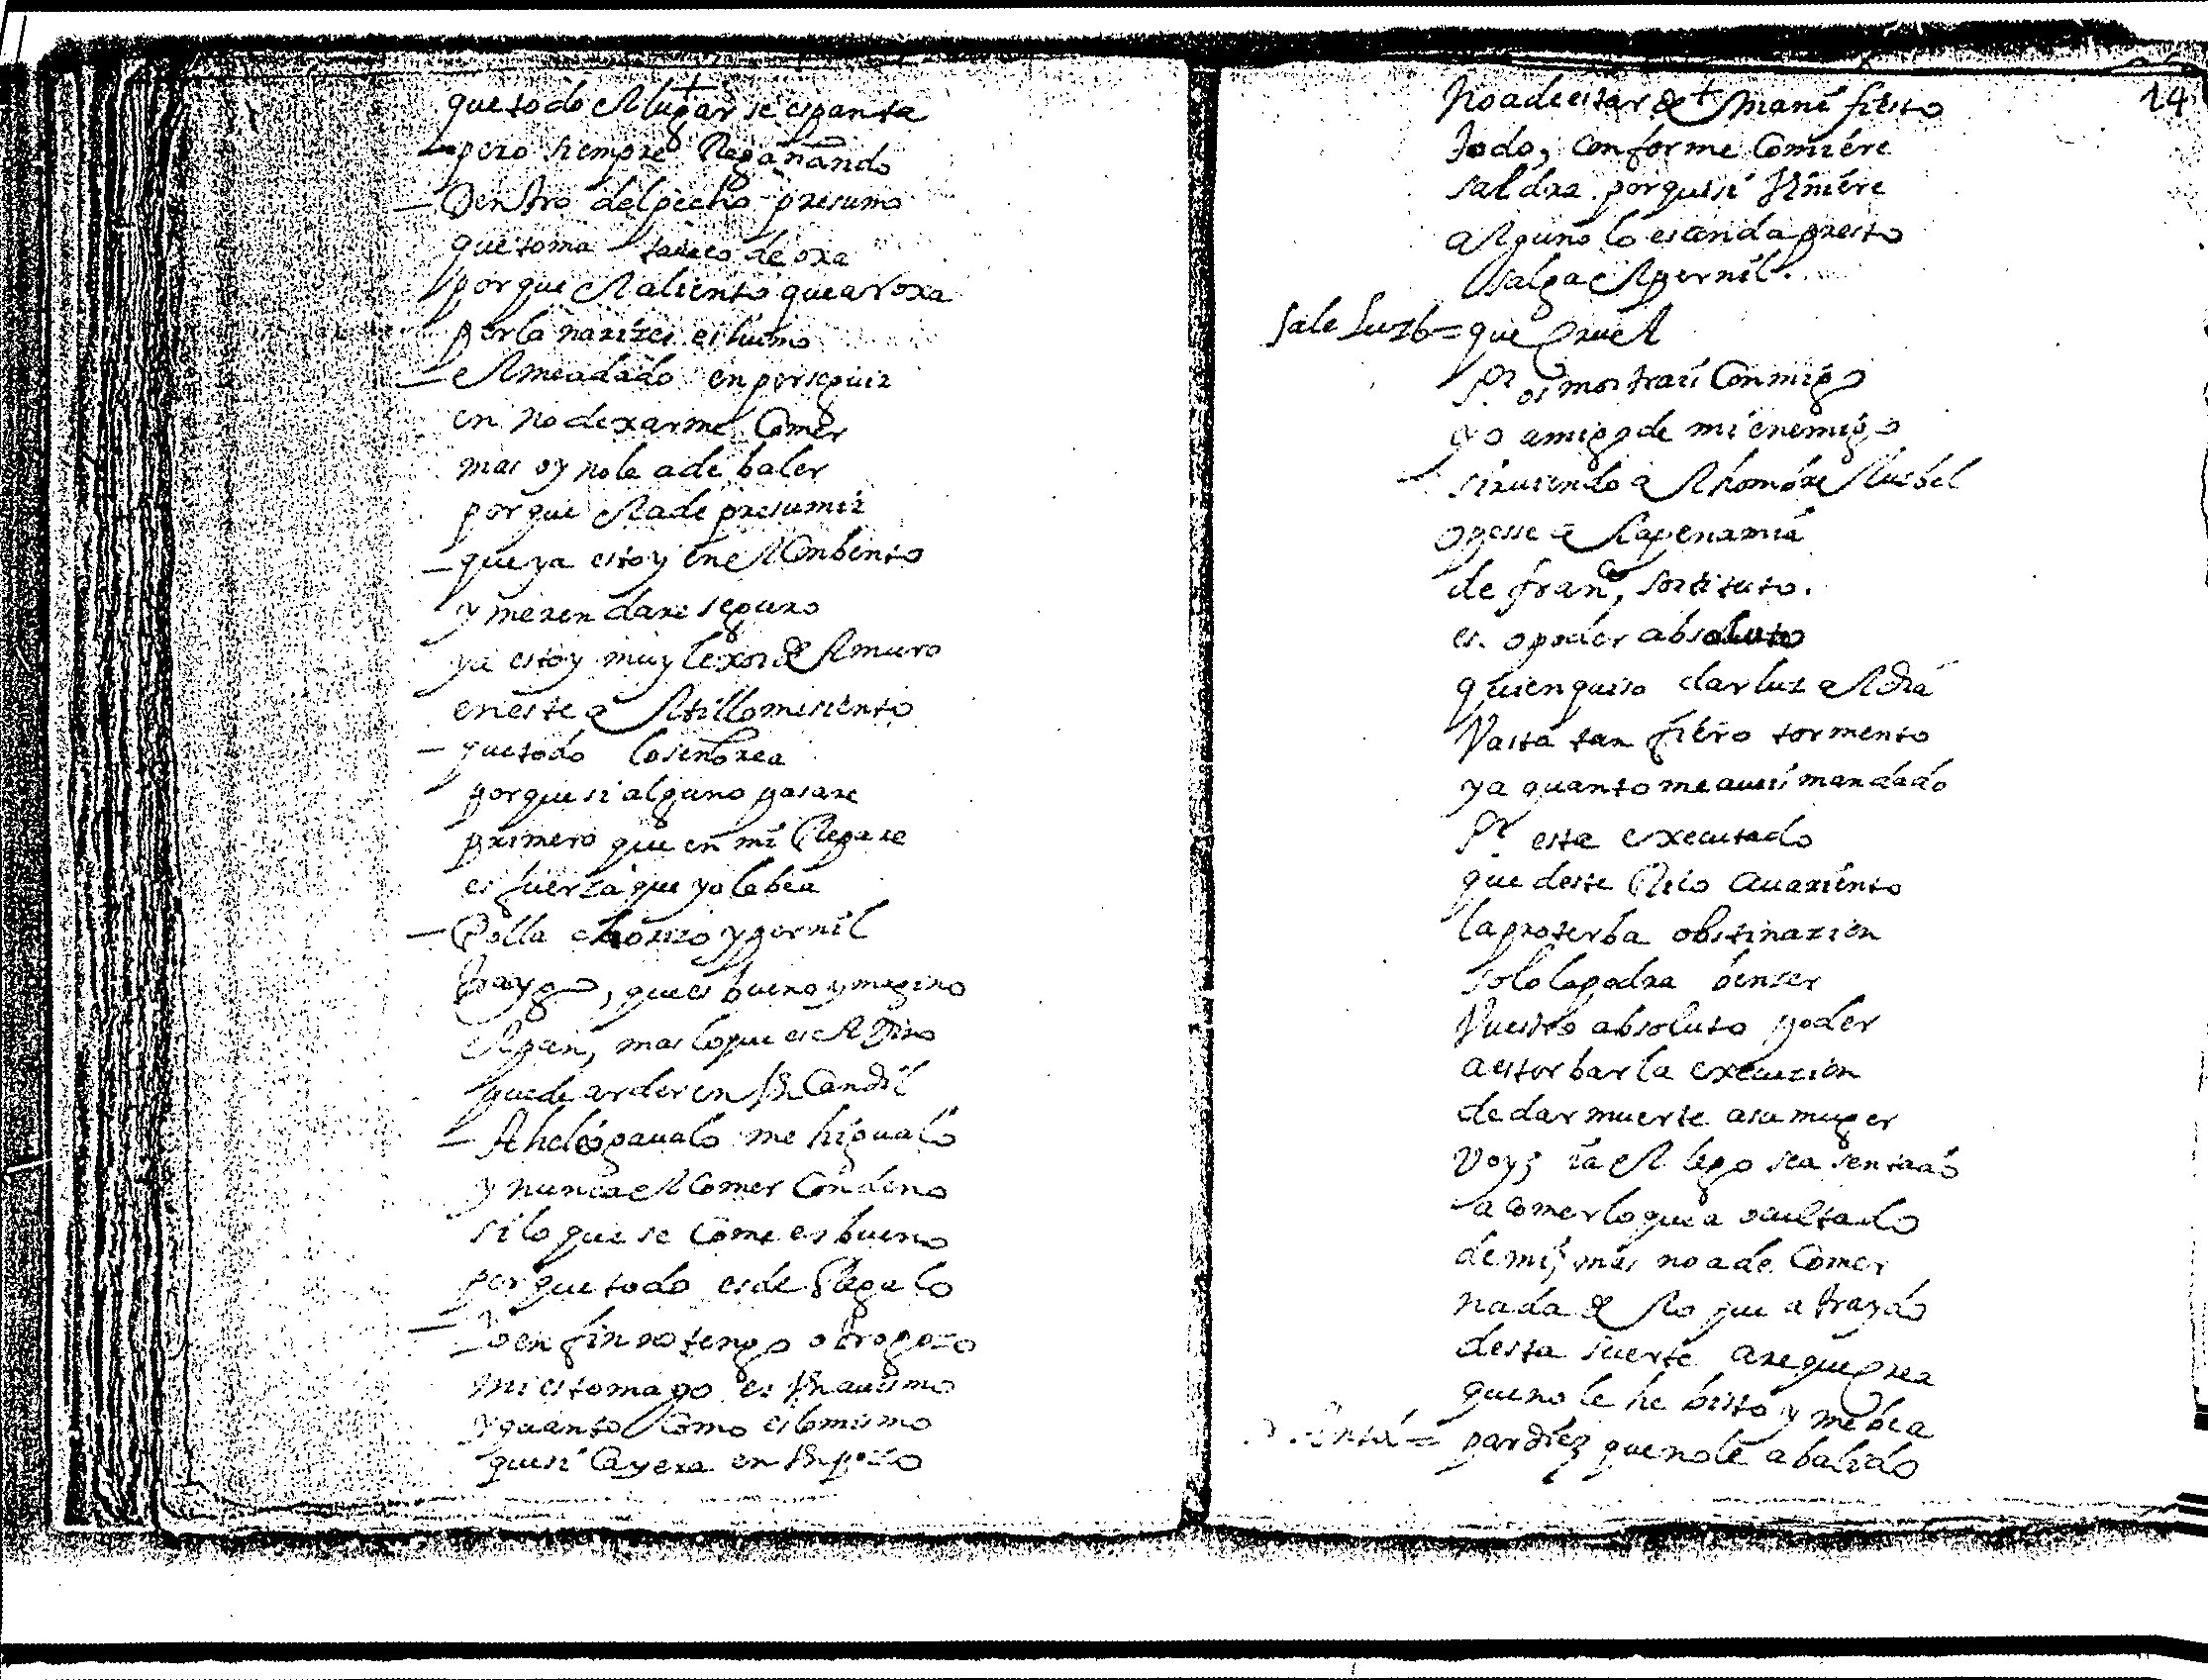 que todo el lugar se espanta
pero siempre Regañando
Dentro del pecho presumo
que toma tabaco de oxa
porque el aliento que aroxa
por la narizes es humo
el me a dado en perseguir
en no dexarme Comer
mas oy no le a de baler
porque el a de presumir
que ya estoy en el Conbento
y merendare seguro
ya estoy muy lexos del muro
en este altillo me siento
que todo lo señorea
porque si alguno pasare
primero que en mi Repare
es fuerza que yo le bea
Polla chorizo y pernil
traygo, que es bueno ymagino
el pan, mas lo que es el Vino
puede arder en Vn Candil
A heliogavalo me higualo
y nunca el Comer Condeno
si lo que se Come es bueno
porque todo es de Regalo
Yo en fin no tengo otro gozo
mi estomago es Vn avismo
y quanto Como es lo mismo
que si Cayera en Vn pozo
14
No a de estar de manifiesto
todo, conforme Comiere
saldra porque si Viniere
alguno lo esconda presto
salga el pernil.
Sale Luzb = que Cruel
Sr os mostrais Conmigo
yo amigo de mi enemigo
sirviendo al hombre luzbel
de franco sostituto.
es, o poder absoluto
quien quiso dar luz al dia
Vasta tan fiero tormento
ya quanto me aueis mandado
Sr esta executado
que deste Rico auariento
la proterba obstinazion
solo la podra benzer
Vuestro absoluto poder
a estorbar la execuzion
de dar muerte a su muger
voy; ya el lego se a sentado
a comer lo que a ocultado
de mi, mas no a de Comer
nada de lo que a traydo
desta suerte are que crea
que no le he bisto y me bea
= pardiez que no le a balido